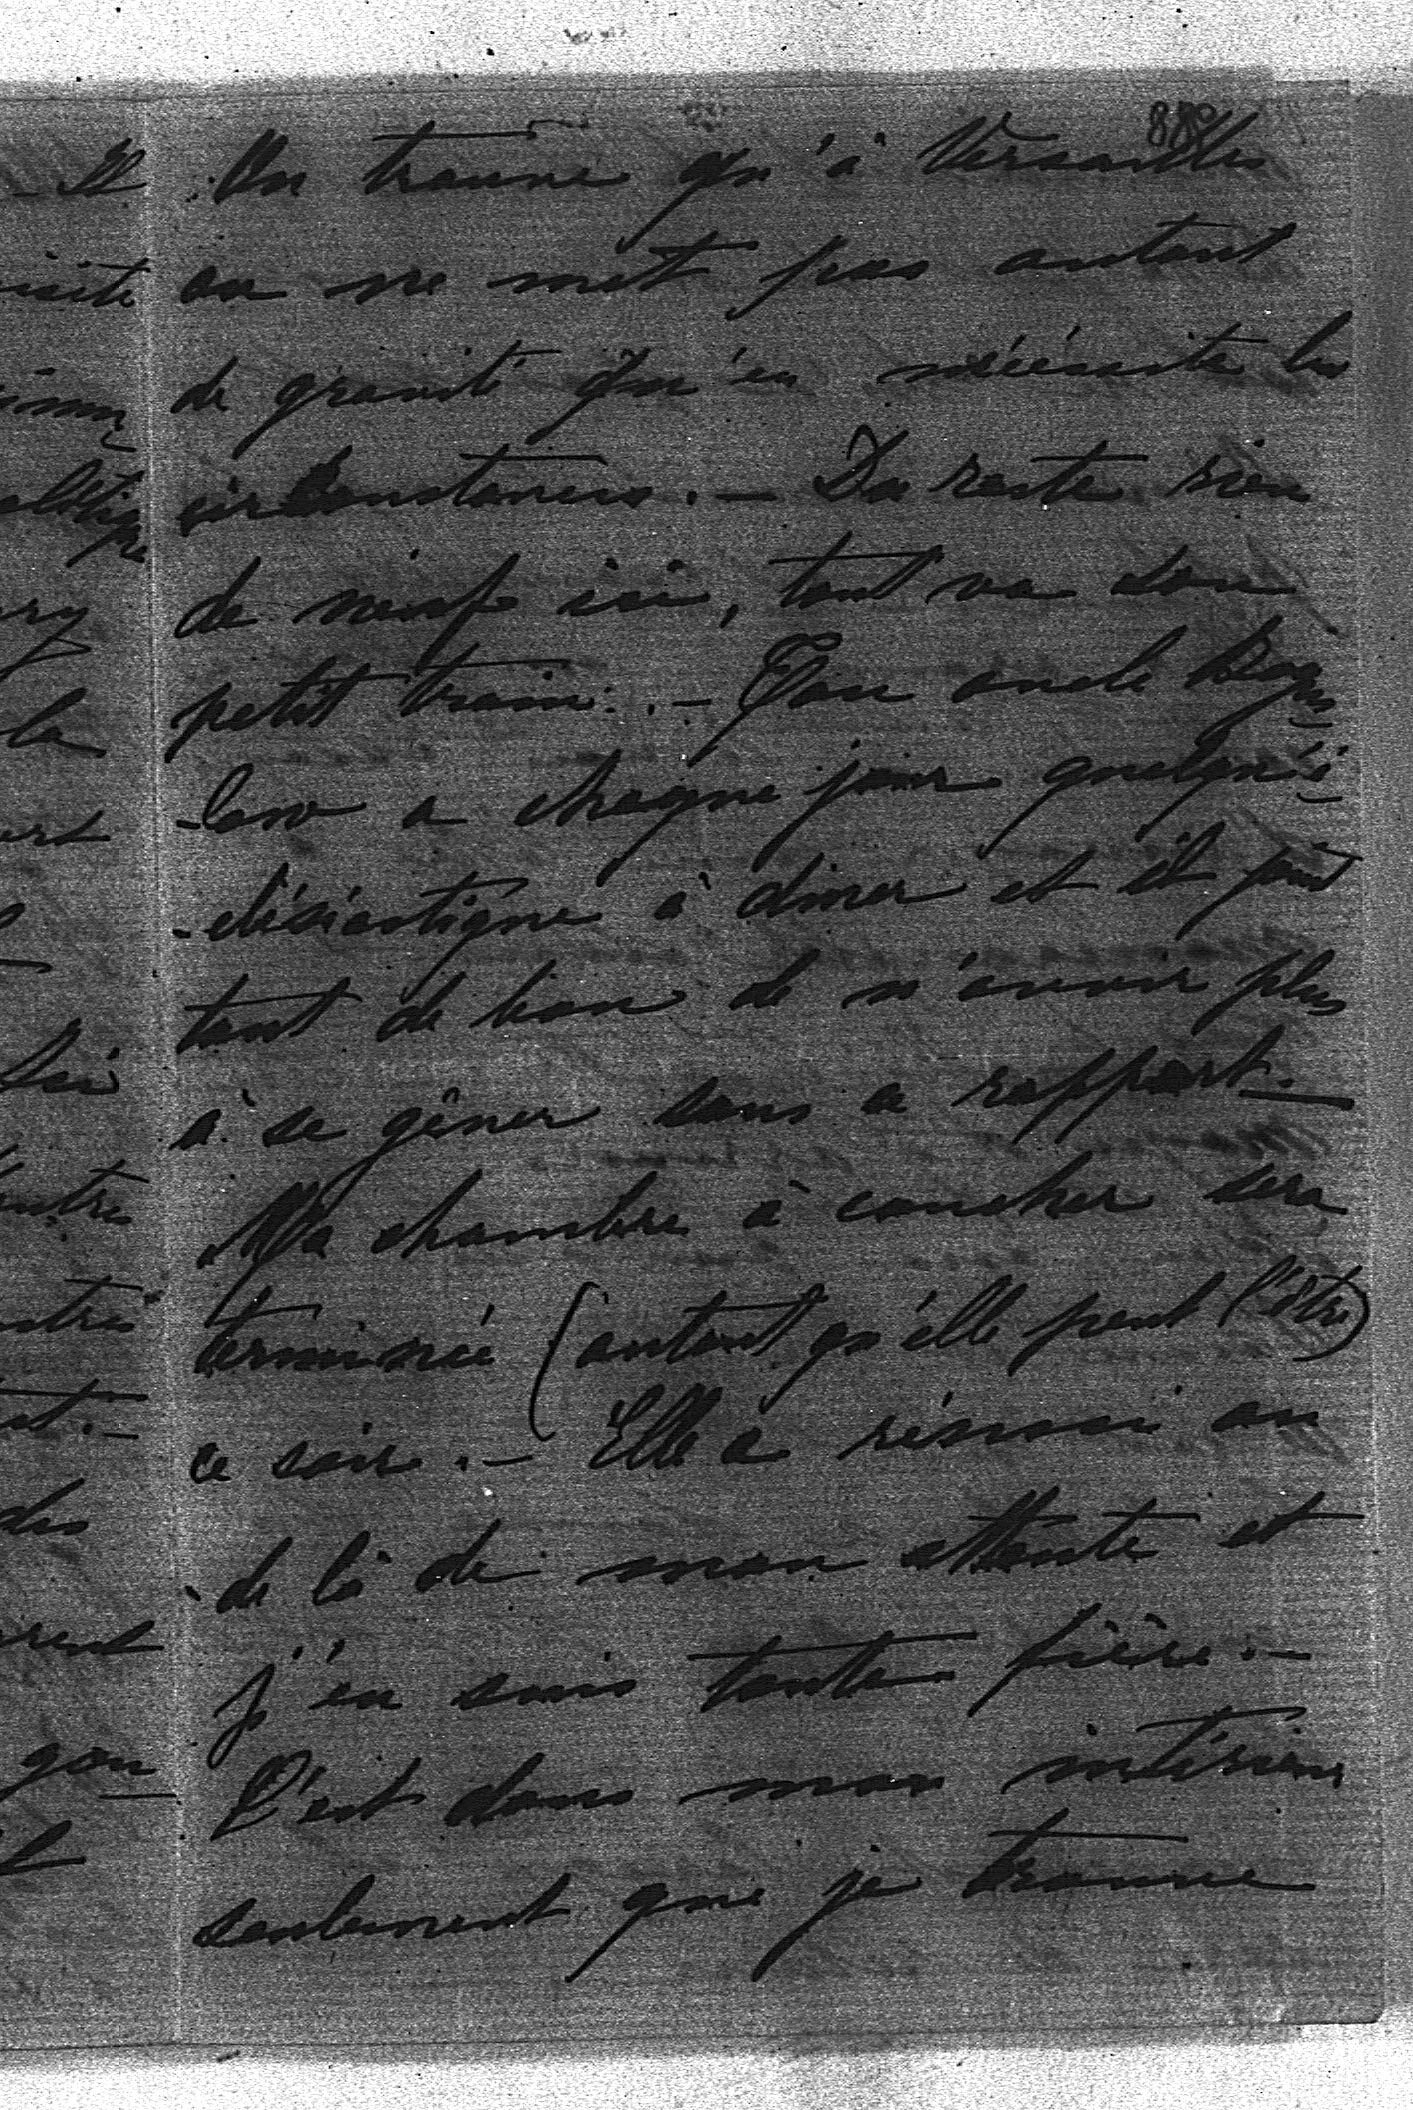 888
On trouve qu'à Versailles
on ne met pas autant
de gravité qu'en nécéssite les
circonstances. — Du reste rien
de neuf ici, tout va son
petit train. — Ton oncle Bogus-
-law a chaque jour quelqu'é-
-clésiastique à diner et il fait
tant de bon de n'avoir plus
à se gêner sous ce rapport. —
Ma chambre à coucher sera
terminée (autant qu'elle peut l'être)
ce soir. — Elle a réussi au
de là de mon attente et
j'en suis toute fière. —
C'est dans mon intérieur
seulement que je trouve